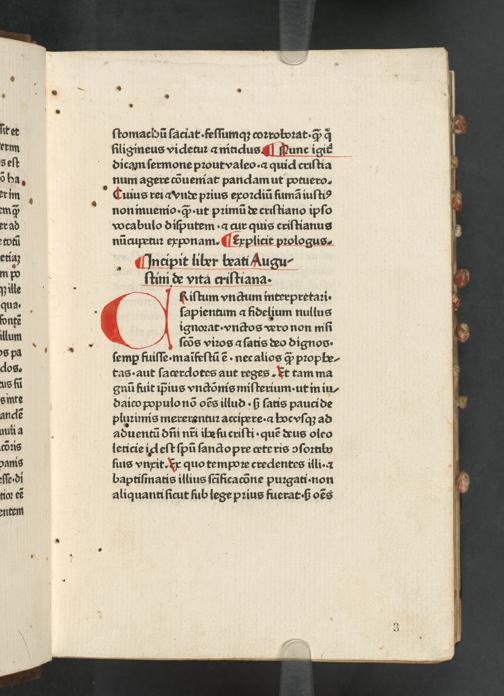 stomachū saciat · fessumqꝫ corroborat · qͣ̄ qͣ̄
siligineus videtur ⁊ nitidus. Nunc igit᷑
dicam sermone prout valeo · ⁊ quid cristia
num agere cōueniat pandam ut potuero.
Cuius rei ⁊ vnde prius exordiū sumā iustiꝰ
non inuenio · qͣ̄ · ut primū de cristiano ipso
vocabulo disputem · ⁊ cur quis cristianus
nūcupetur exponam. Explicit prologus.
Incipit liber beati Augu-
stini de vita cristiana.
CRistum vnctum interpretari ·
sapientum ⁊ fidelium nullus
ignorat · vnctos vero non nisi
scōs viros ⁊ satis deo dignos ·
semꝑ fuisse · maīfestū ē · nec alios qͣ̄ prophe-
tas · aut sacerdotes aut reges. Et tam ma
gnū fuit ip̄ius vnctōnis misterium · ut in iu-
daico populo nō oēs illud · sꝫ satis pauci de
plurimis mererentur accipere · ⁊ hoc vsqꝫ ad
aduentū dn̄i nr̄i ihesu cristi · quē deus oleo
leticie id est spū sancto pre ceteris ↄsortibꝰ
suis vnxit. Ex quo tempore credentes illi · ⁊
baptismatis illius scīficacōne purgati · non
aliquanti sicut sub lege prius fuerat · sꝫ oēs
3